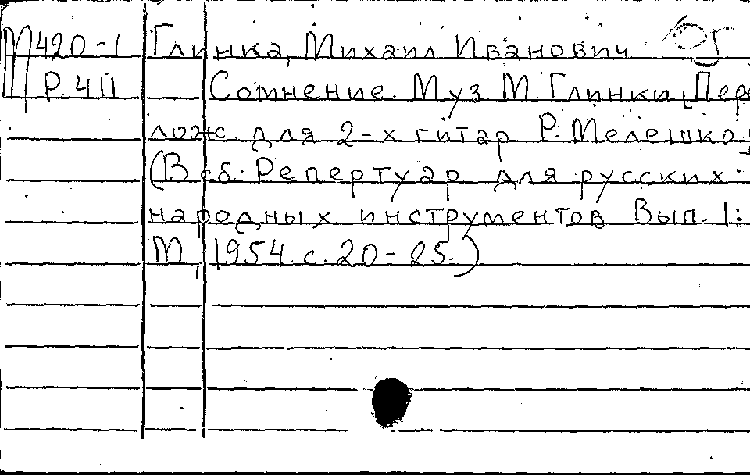 М420-1 Глинка, Михаил Иванович
Р.411 Сомнение. Муз. М. Глинки. Пер
лож. для 2-х гитар Р. Мелешко
(В сб. Репертуар для русских
народных инструментов Вып. 1:
М, 1954. с. 20-25.)